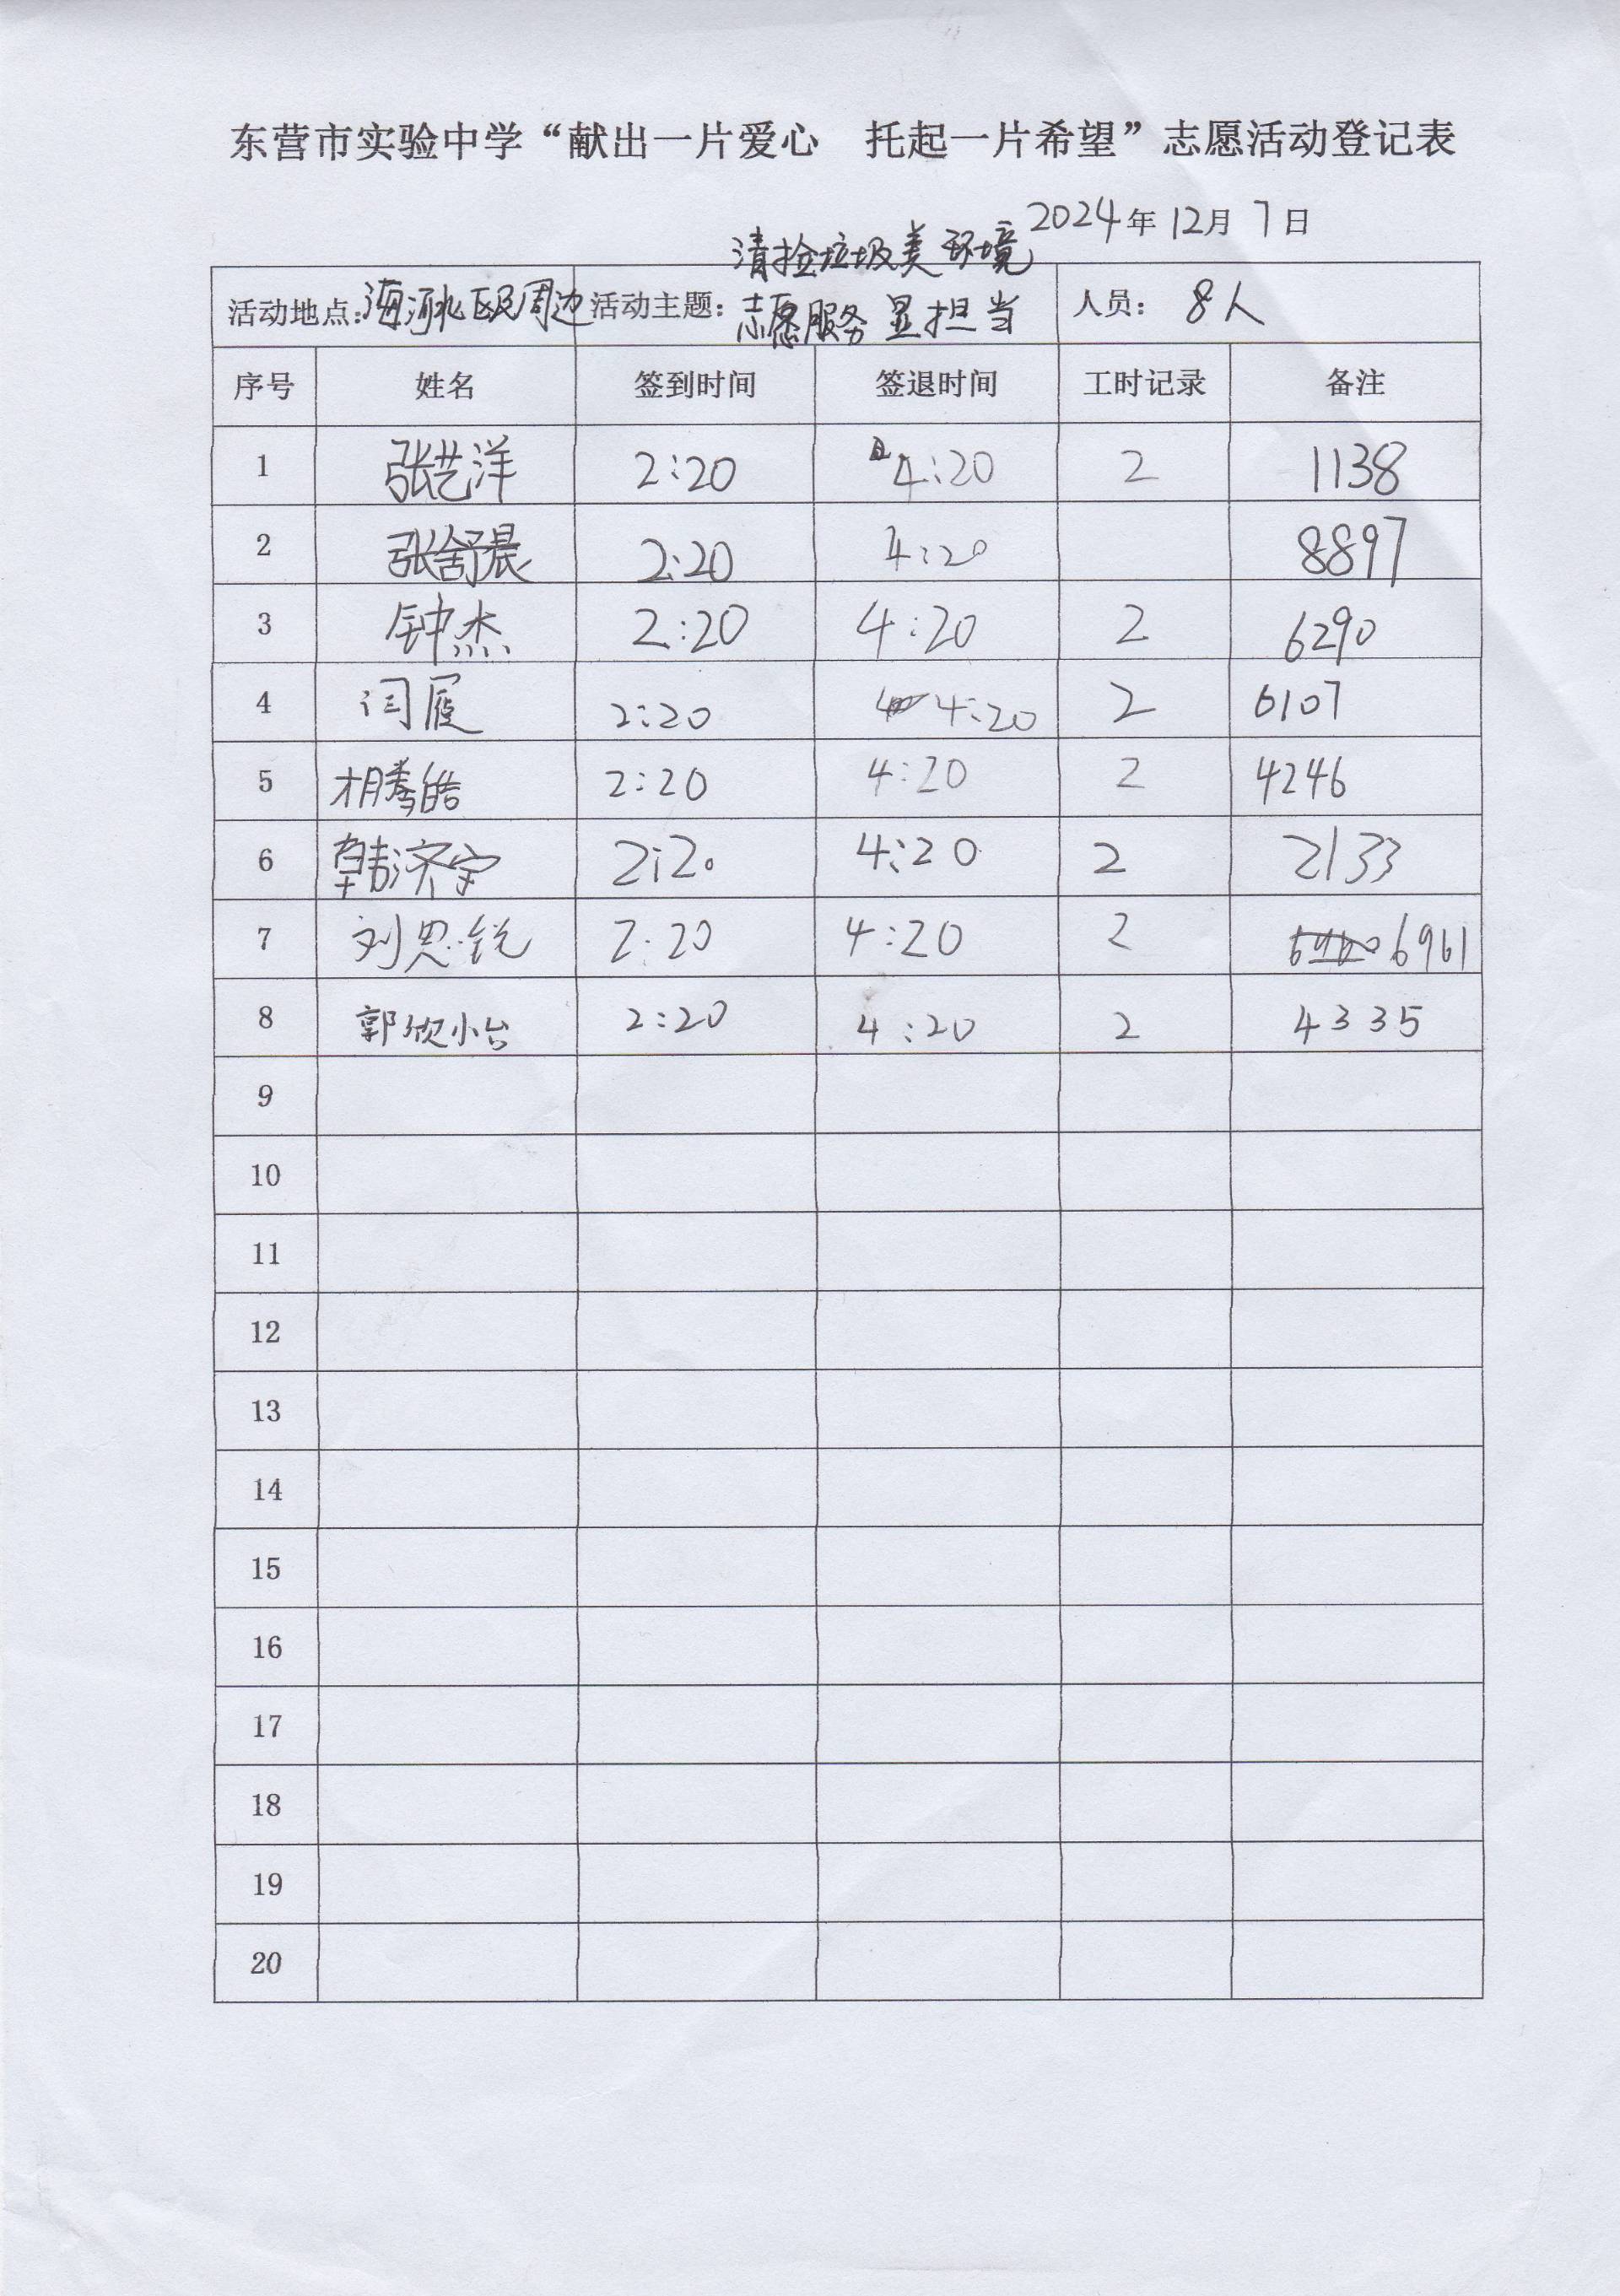 东营市实验中学“献出一片爱心 托起一片希望”志愿活动登记表
2024年12月7日
活动地点:海河北区段周边 活动主题: 清捡垃圾美环境 志愿服务显担当 人员: 8人
序号 姓名 签到时间 签退时间 工时记录 备注
1 张艺洋 2:20 4:20 2 1138
2 张舒晨 2:20 4:20 8897
3 钟杰 2:20 4:20 2 6290
4 闫 2:20 4:20 2 6107
5 2:20 4:20 2 4246
6 韩济宇 2:20 4:20 2 2133
7 刘思锐 2:20 4:20 2 6961
8 郭欣怡 2:20 4:20 2 4335
9
10
11
12
13
14
15
16
17
18
19
20